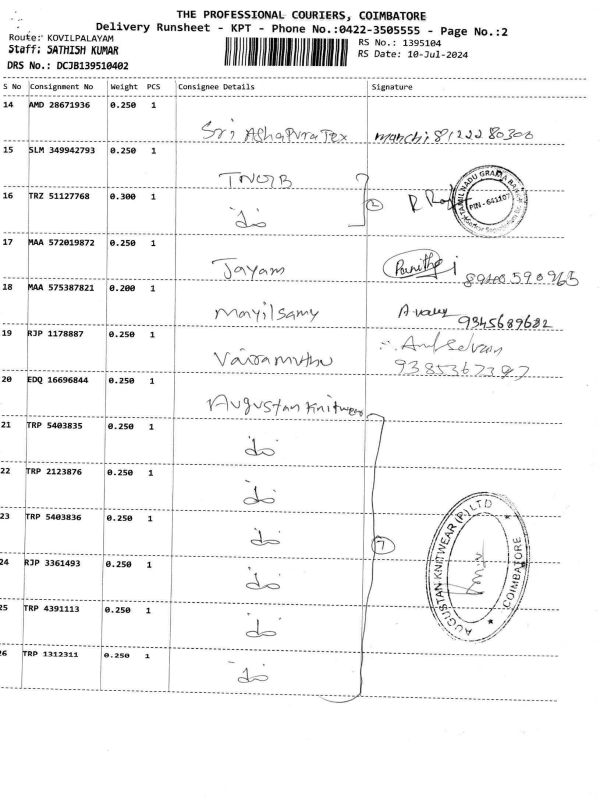 THE PROFESSIONAL COURIERS, COIMBATORE
Delivery Runsheet - KPT - Phone No.:0422-3505555 - Page No.:2
Route: KOVILPALAYAM
Staff: SATHISH KUMAR
DRS No.: DCJB139510402
RS No.: 1395104
RS Date: 10-Jul-2024
S No Consignment No Weight PCS Consignee Details Signature
14 AMD 28671936 0.250 1
Sri Ashapura Tex manchi 8122280300
15 SLM 349942793 0.250 1
TNGB
16 TRZ 51127768 0.300 1
do 2
TAMIL NADU GRAMA BANK
PIN - 641107
17 MAA 572019872 0.250 1
Jayam
18 MAA 575387821 0.200 1
Mayilsamy 9345689682
19 RJP 1178887 0.250 1
Vairamuthu
20 EDQ 16696844 0.250 1
Augustan Knitwear
21 TRP 5403835 0.250 1
do
22 TRP 2123876 0.250 1
do
23 TRP 5403836 0.250 1
do 7
24 RJP 3361493 0.250 1
do
25 TRP 4391113 0.250 1
do
26 TRP 1312311 0.250 1
do
AUGUSTAN KNITWEAR (P) LTD
COIMBATORE